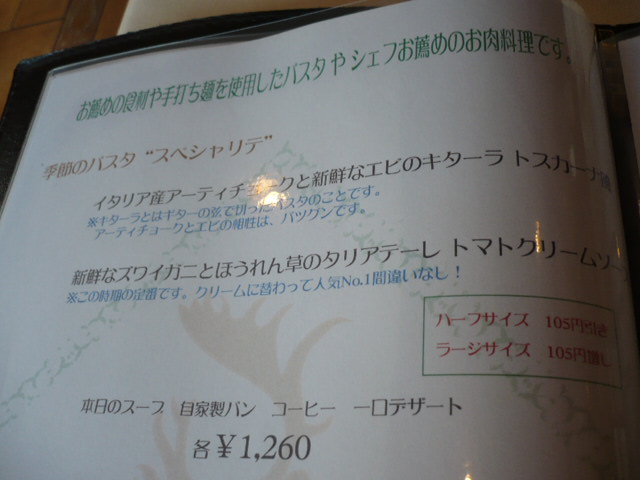 お薦めの食材や手打ち麺を使用したパスタ や シェフお薦めのお肉料理です。
季節のパスタ “スペシャリテ”
イタリア産アーティチョークと新鮮なエビのキターラ トスカーナ
※キターラとはギターの弦で切ったパスタのことです。
アーティチョークとエビの相性は、バツグンです。
新鮮なズワイガニとほうれん草のタリアテーレ トマトクリームソー
※この時期の定番です。クリームに替わって人気No.1間違いなし！
ハーフサイズ 105円引き
ラージサイズ 105円増し
本日のスープ 自家製パン コーヒー 一口デザート
各￥1,260